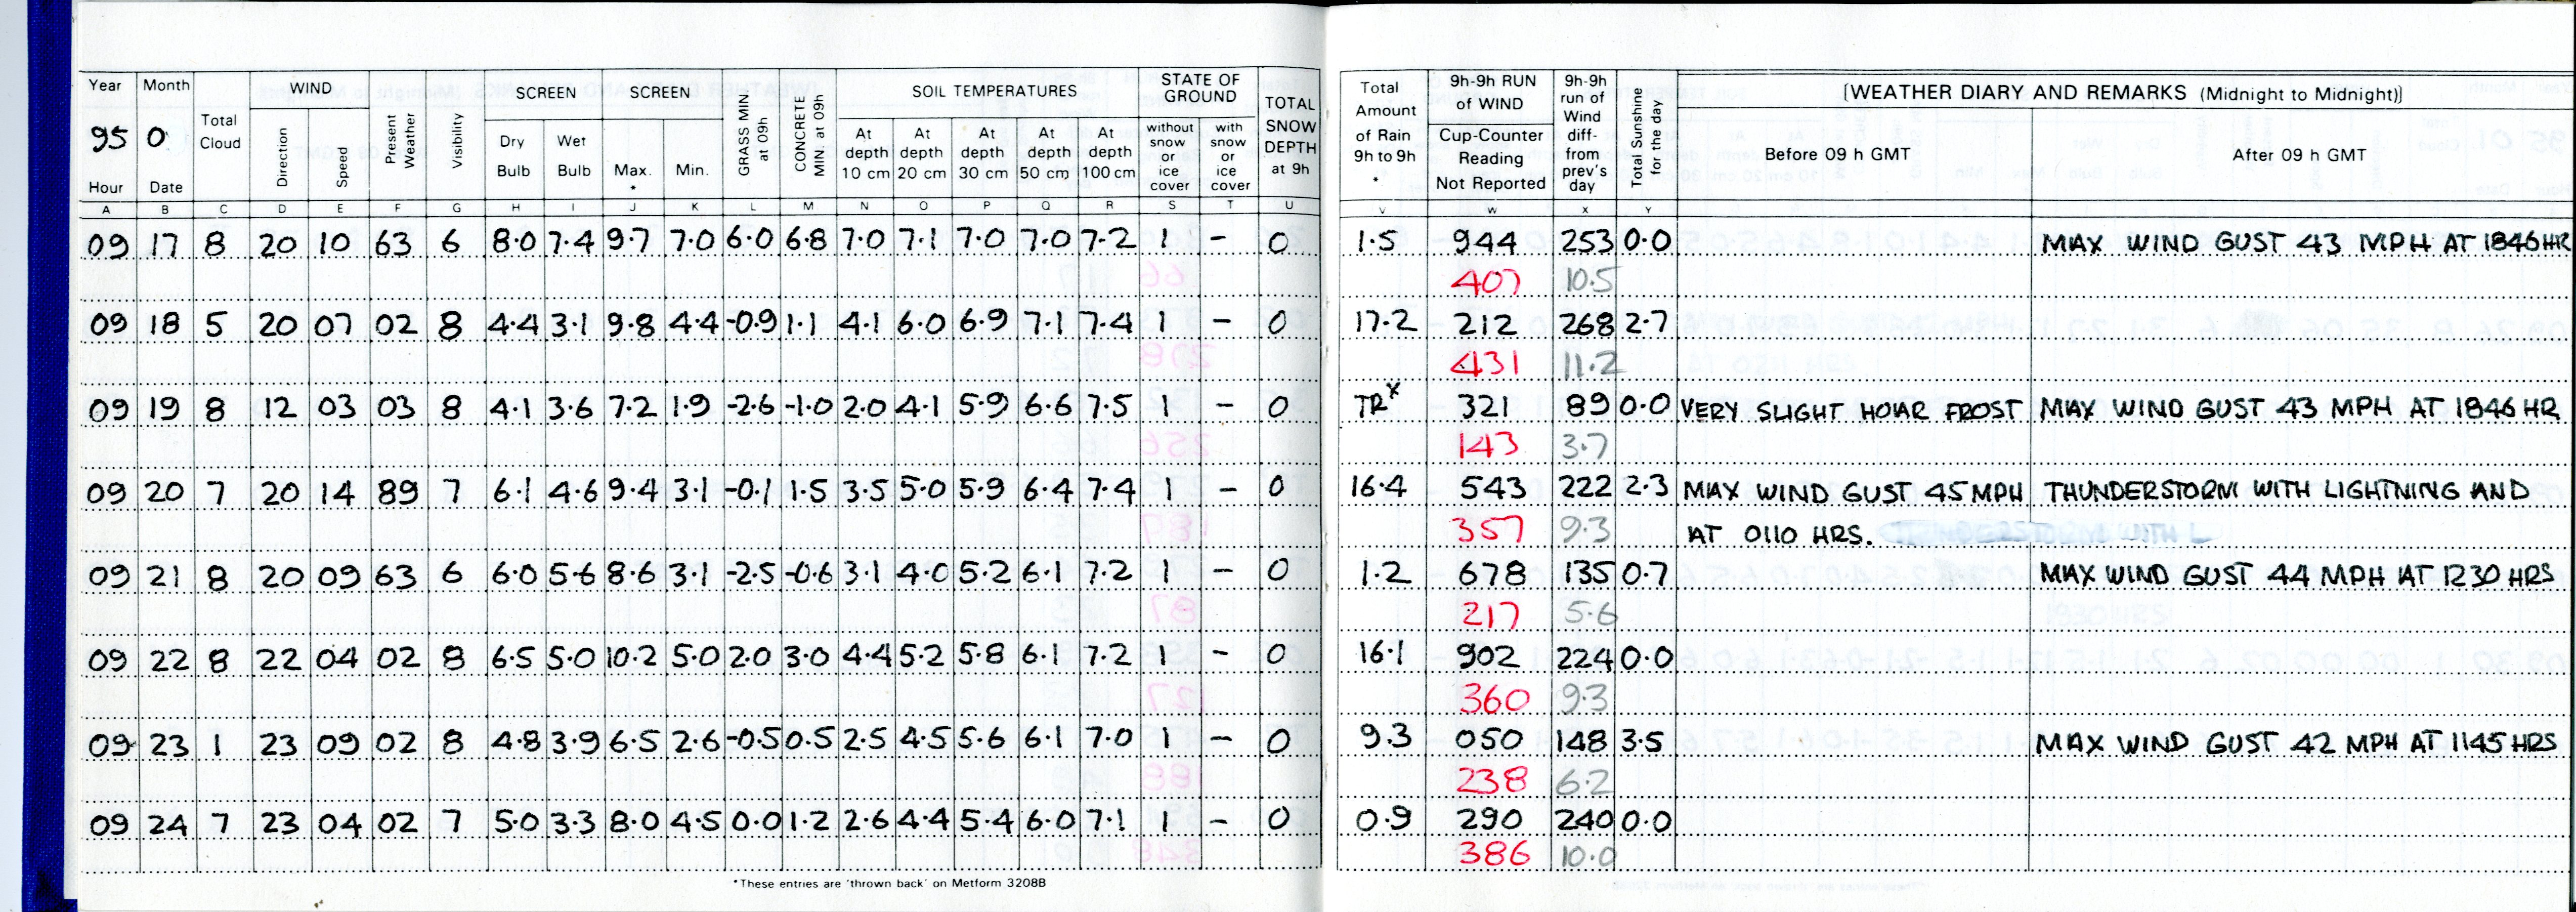 Year Month Total Cloud WIND Present Weather Visibility SCREEN SCREEN GRASS MIN. at 09h CONCRETE MIN at 09h SOIL TEMPERATURES STATE OF GROUND TOTAL SNOW DEPTH at 9h Total Amount of Rain 9h to 9h * 9h-9h RUN of WIND 9h-9h run of Wind diff- from prev's day Total Sunshine for the day [WEATHER DIARY AND REMARKS (Midnight to Midnight)]
95 0 Direction Speed Dry Bulb Wet Bulb Max. * Min. At depth 10 cm At depth 20 cm At depth 30 cm At depth 50 cm At depth 100 cm without snow or ice cover with snow or ice cover Cup-Counter Reading Not Reported Before 09 h GMT After 09 h GMT
Hour Date
A B C D E F G H I J K L M N O P Q R S T U V W X Y
09 17 8 20 10 63 6 8.0 7.4 9.7 7.0 6.0 6.8 7.0 7.1 7.0 7.0 7.2 1 - 0 1.5 944 253 0.0 MAX WIND GUST 43 MPH AT 1846 HR
407 10.5
09 18 5 20 07 02 8 4.4 3.1 9.8 4.4 -0.9 1.1 4.1 6.0 6.9 7.1 7.4 1 - 0 17.2 212 268 2.7
431 11.2
09 19 8 12 03 03 8 4.1 3.6 7.2 1.9 -2.6 -1.0 2.0 4.1 5.9 6.6 7.5 1 - 0 TRx 321 89 0.0 VERY SLIGHT HOAR FROST MAX WIND GUST 43 MPH AT 1846 HR
143 3.7
09 20 7 20 14 89 7 6.1 4.6 9.4 3.1 -0.1 1.5 3.5 5.0 5.9 6.4 7.4 1 - 0 16.4 543 222 2.3 MAX WIND GUST 45 MPH THUNDERSTORM WITH LIGHTNING AND
357 9.3 AT 0110 HRS. THUNDERSTORM WITH L
09 21 8 20 09 63 6 6.0 5.6 8.6 3.1 -2.5 -0.6 3.1 4.0 5.2 6.1 7.2 1 - 0 1.2 678 135 0.7 MAX WIND GUST 44 MPH AT 1230 HRS
217 5.6
09 22 8 22 04 02 8 6.5 5.0 10.2 5.0 2.0 3.0 4.4 5.2 5.8 6.1 7.2 1 - 0 16.1 902 224 0.0
360 9.3
09 23 1 23 09 02 8 4.8 3.9 6.5 2.6 -0.5 0.5 2.5 4.5 5.6 6.1 7.0 1 - 0 9.3 050 148 3.5 MAX WIND GUST 42 MPH AT 1145 HRS
238 6.2
09 24 7 23 04 02 7 5.0 3.3 8.0 4.5 0.0 1.2 2.6 4.4 5.4 6.0 7.1 1 - 0 0.9 290 240 0.0
386 10.0
*These entries are 'thrown back' on Metform 3208B